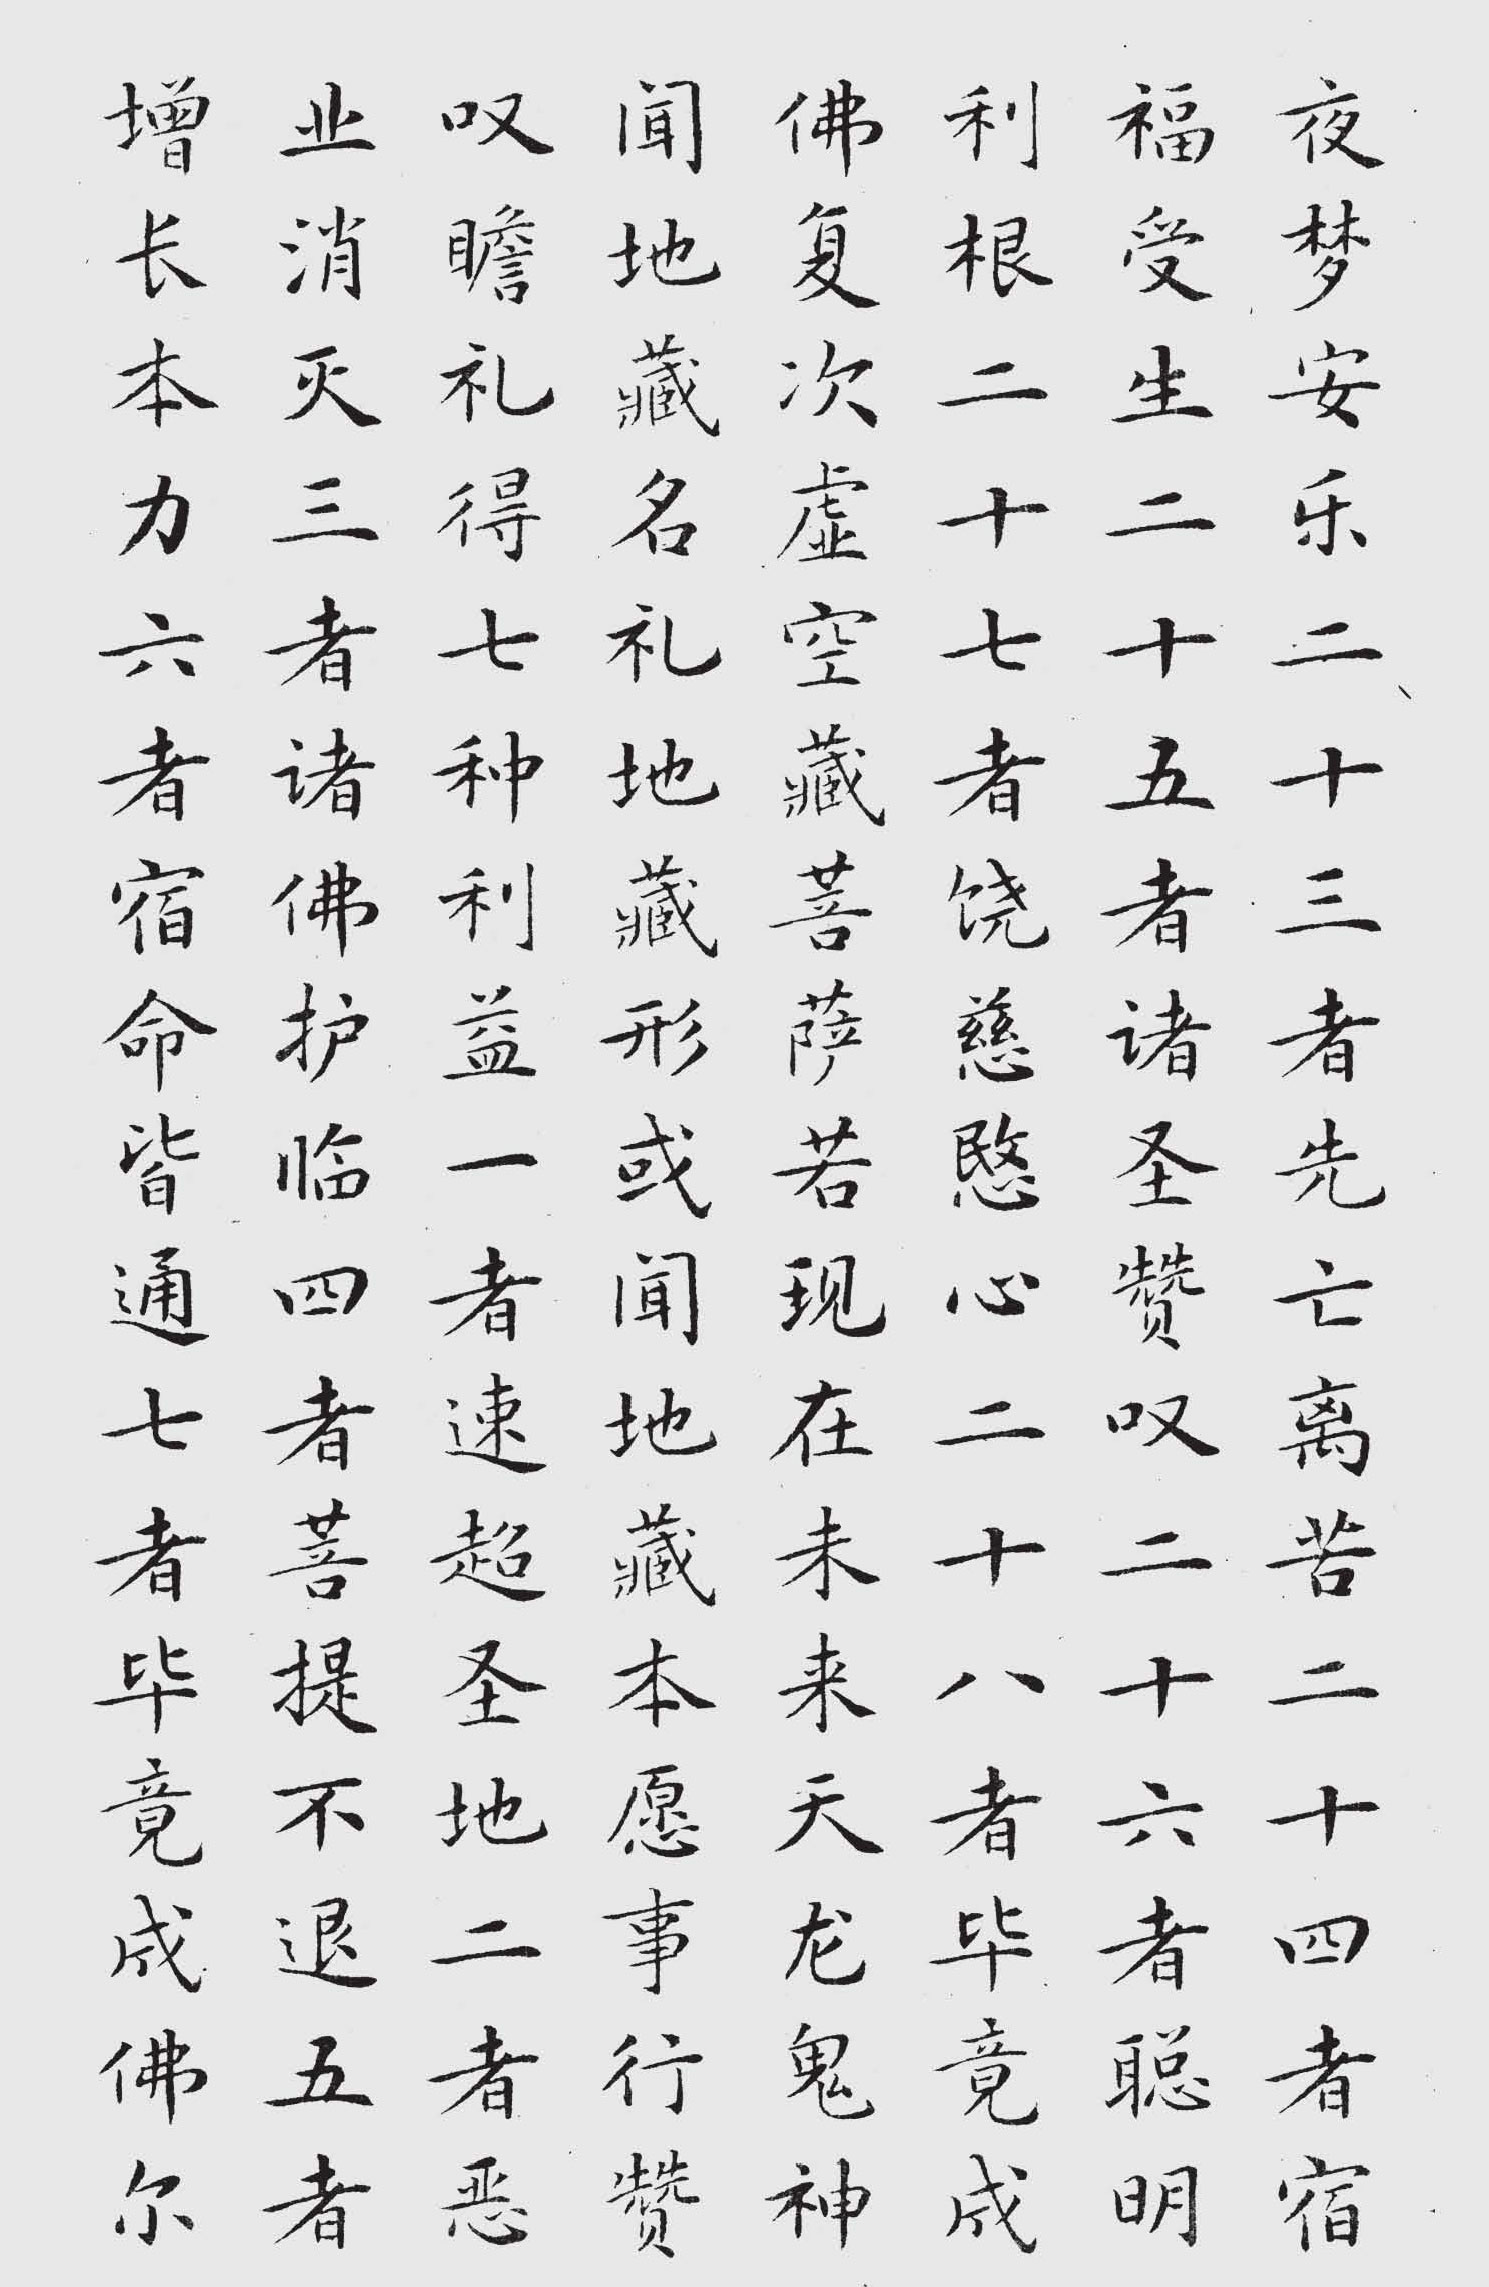 夜梦安乐二十三者先亡离苦二十四者宿
福受生二十五者诸圣赞叹二十六者聪明
利根二十七者饶慈愍心二十八者毕竟成
佛复次虚空藏菩萨若现在未来天龙鬼神
闻地藏名礼地藏形或闻地藏本愿事行赞
叹瞻礼得七种利益一者速超圣地二者恶
业消灭三者诸佛护临四者菩提不退五者
增长本力六者宿命皆通七者毕竟成佛尔